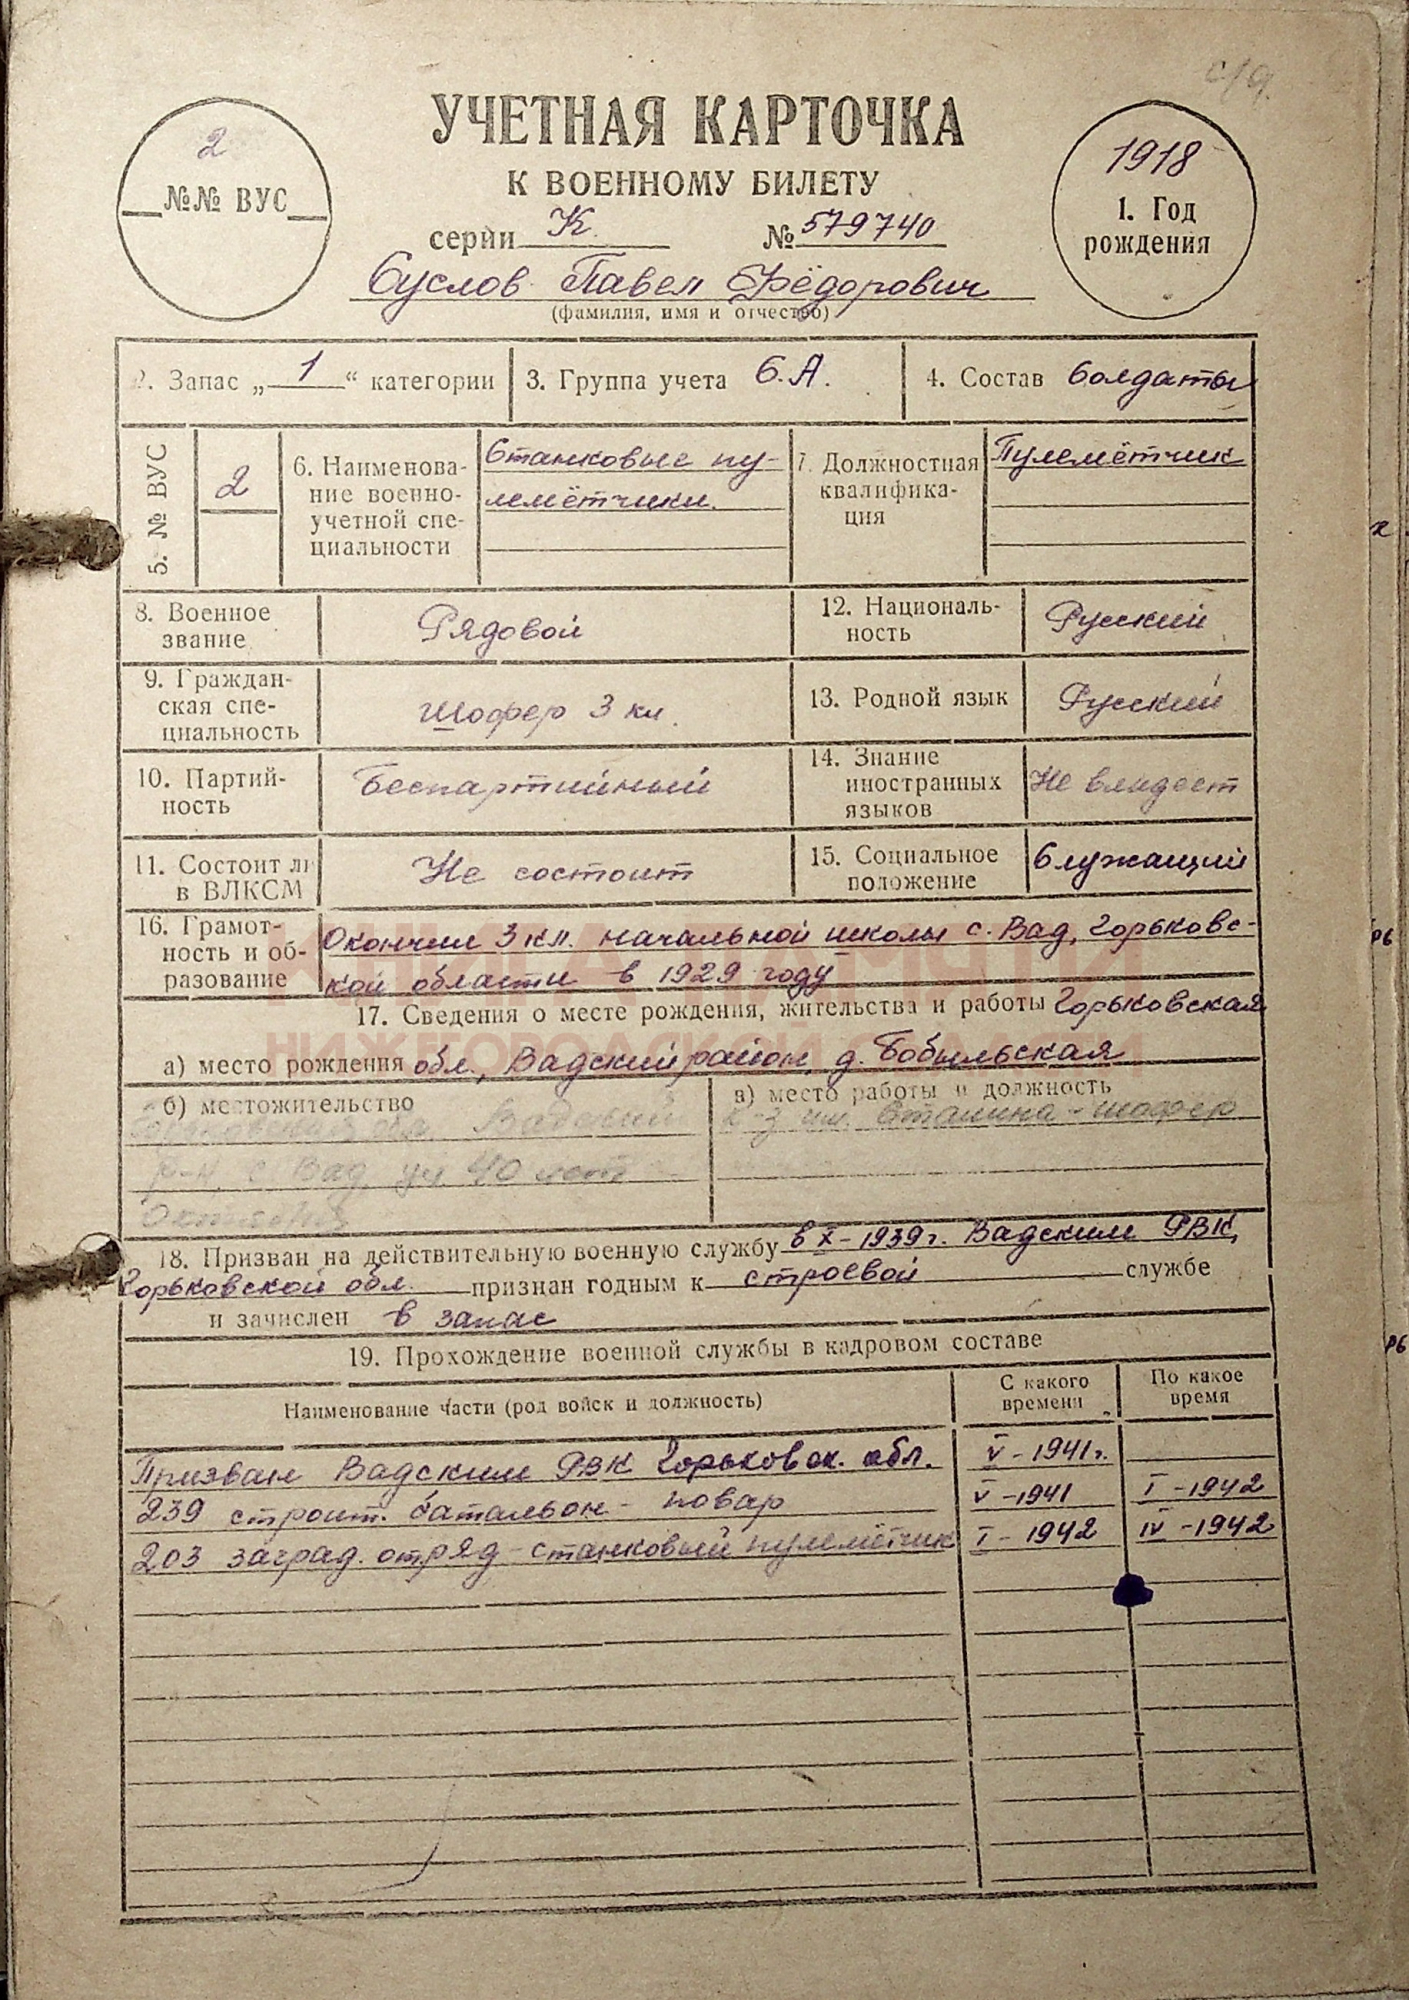 с/д.
УЧЕТНАЯ КАРТОЧКА
К ВОЕННОМУ БИЛЕТУ
серии К. № 579740
2
№№ ВУС
1918
1. Год
рождения
Суслов Павел Фёдорович
(фамилия, имя и отчество)
2. Запас „ 1 “ категории
3. Группа учета С.А.
4. Состав Солдаты
5. № ВУС
2
6. Наименова-
ние военно-
учетной спе-
циальности
Станковые пу-
лемётчики.
7. Должностная
квалифика-
ция
Пулемётчик
8. Военное
звание
Рядовой
12. Националь-
ность
Русский
9. Граждан-
ская спе-
циальность
Шофер 3 кл.
13. Родной язык
Русский
10. Партий-
ность
Беспартийный
14. Знание
иностранных
языков
Не владеет
11. Состоит ли
в ВЛКСМ
Не состоит
15. Социальное
положение
Служащий
16. Грамот-
ность и об-
разование
Окончил 3 кл. начальной школы с. Вад, Горьковс-
кой области в 1929 году
КНИГА ПАМЯТИ
НИЖЕГОРОДСКОЙ ОБЛАСТИ
17. Сведения о месте рождения, жительства и работы Горьковская
а) место рождения обл., Вадский район, д. Бобыльская
б) местожительство
Горьковская обл. Вадский
р-н, с. Вад, ул. 40 лет
Октября
в) место работы и должность
к-з им. Сталина - шофер
18. Призван на действительную военную службу в X - 1939 г. Вадским РВК,
Горьковской обл. признан годным к строевой службе
и зачислен в запас
19. Прохождение военной службы в кадровом составе
Наименование части (род войск и должность)
С какого
времени
По какое
время
Призван Вадским РВК Горьковск. обл. V - 1941 г.
239 строит. батальон - повар V - 1941 I - 1942
203 заград. отряд - станковый пулемётчик I - 1942 IV - 1942